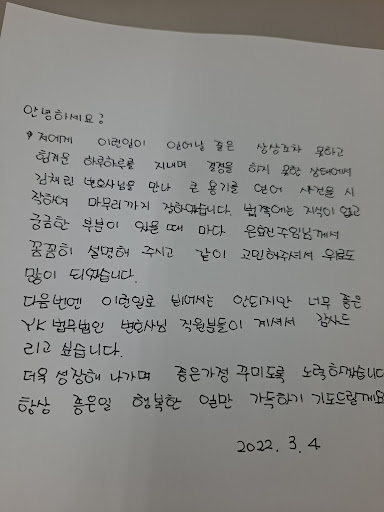 안녕하세요?
저에게 이런일이 일어날 줄은 상상조차 못하고
힘겨운 하루하루를 지내며 결정을 하지 못한 상태에서
김채린 변호사님을 만나 큰 용기를 얻어 사건을 시
작하여 마무리까지 잘하였습니다. 법쪽에는 지식이 없고
궁금한 부분이 있을 때 마다 은효진주임님께서
꼼꼼히 설명해 주시고 같이 고민해주셔서 위로도
많이 되었습니다.
다음번엔 이런일로 뵈어서는 안되지만 너무 좋은
YK 법무법인 변호사님 직원분들이 계셔서 감사드
리고 싶습니다.
더욱 성장해 나가며 좋은가정 꾸미도록 노력하겠습니다
항상 좋은일 행복한 일만 가득하기 기도드릴게요
2022. 3. 4